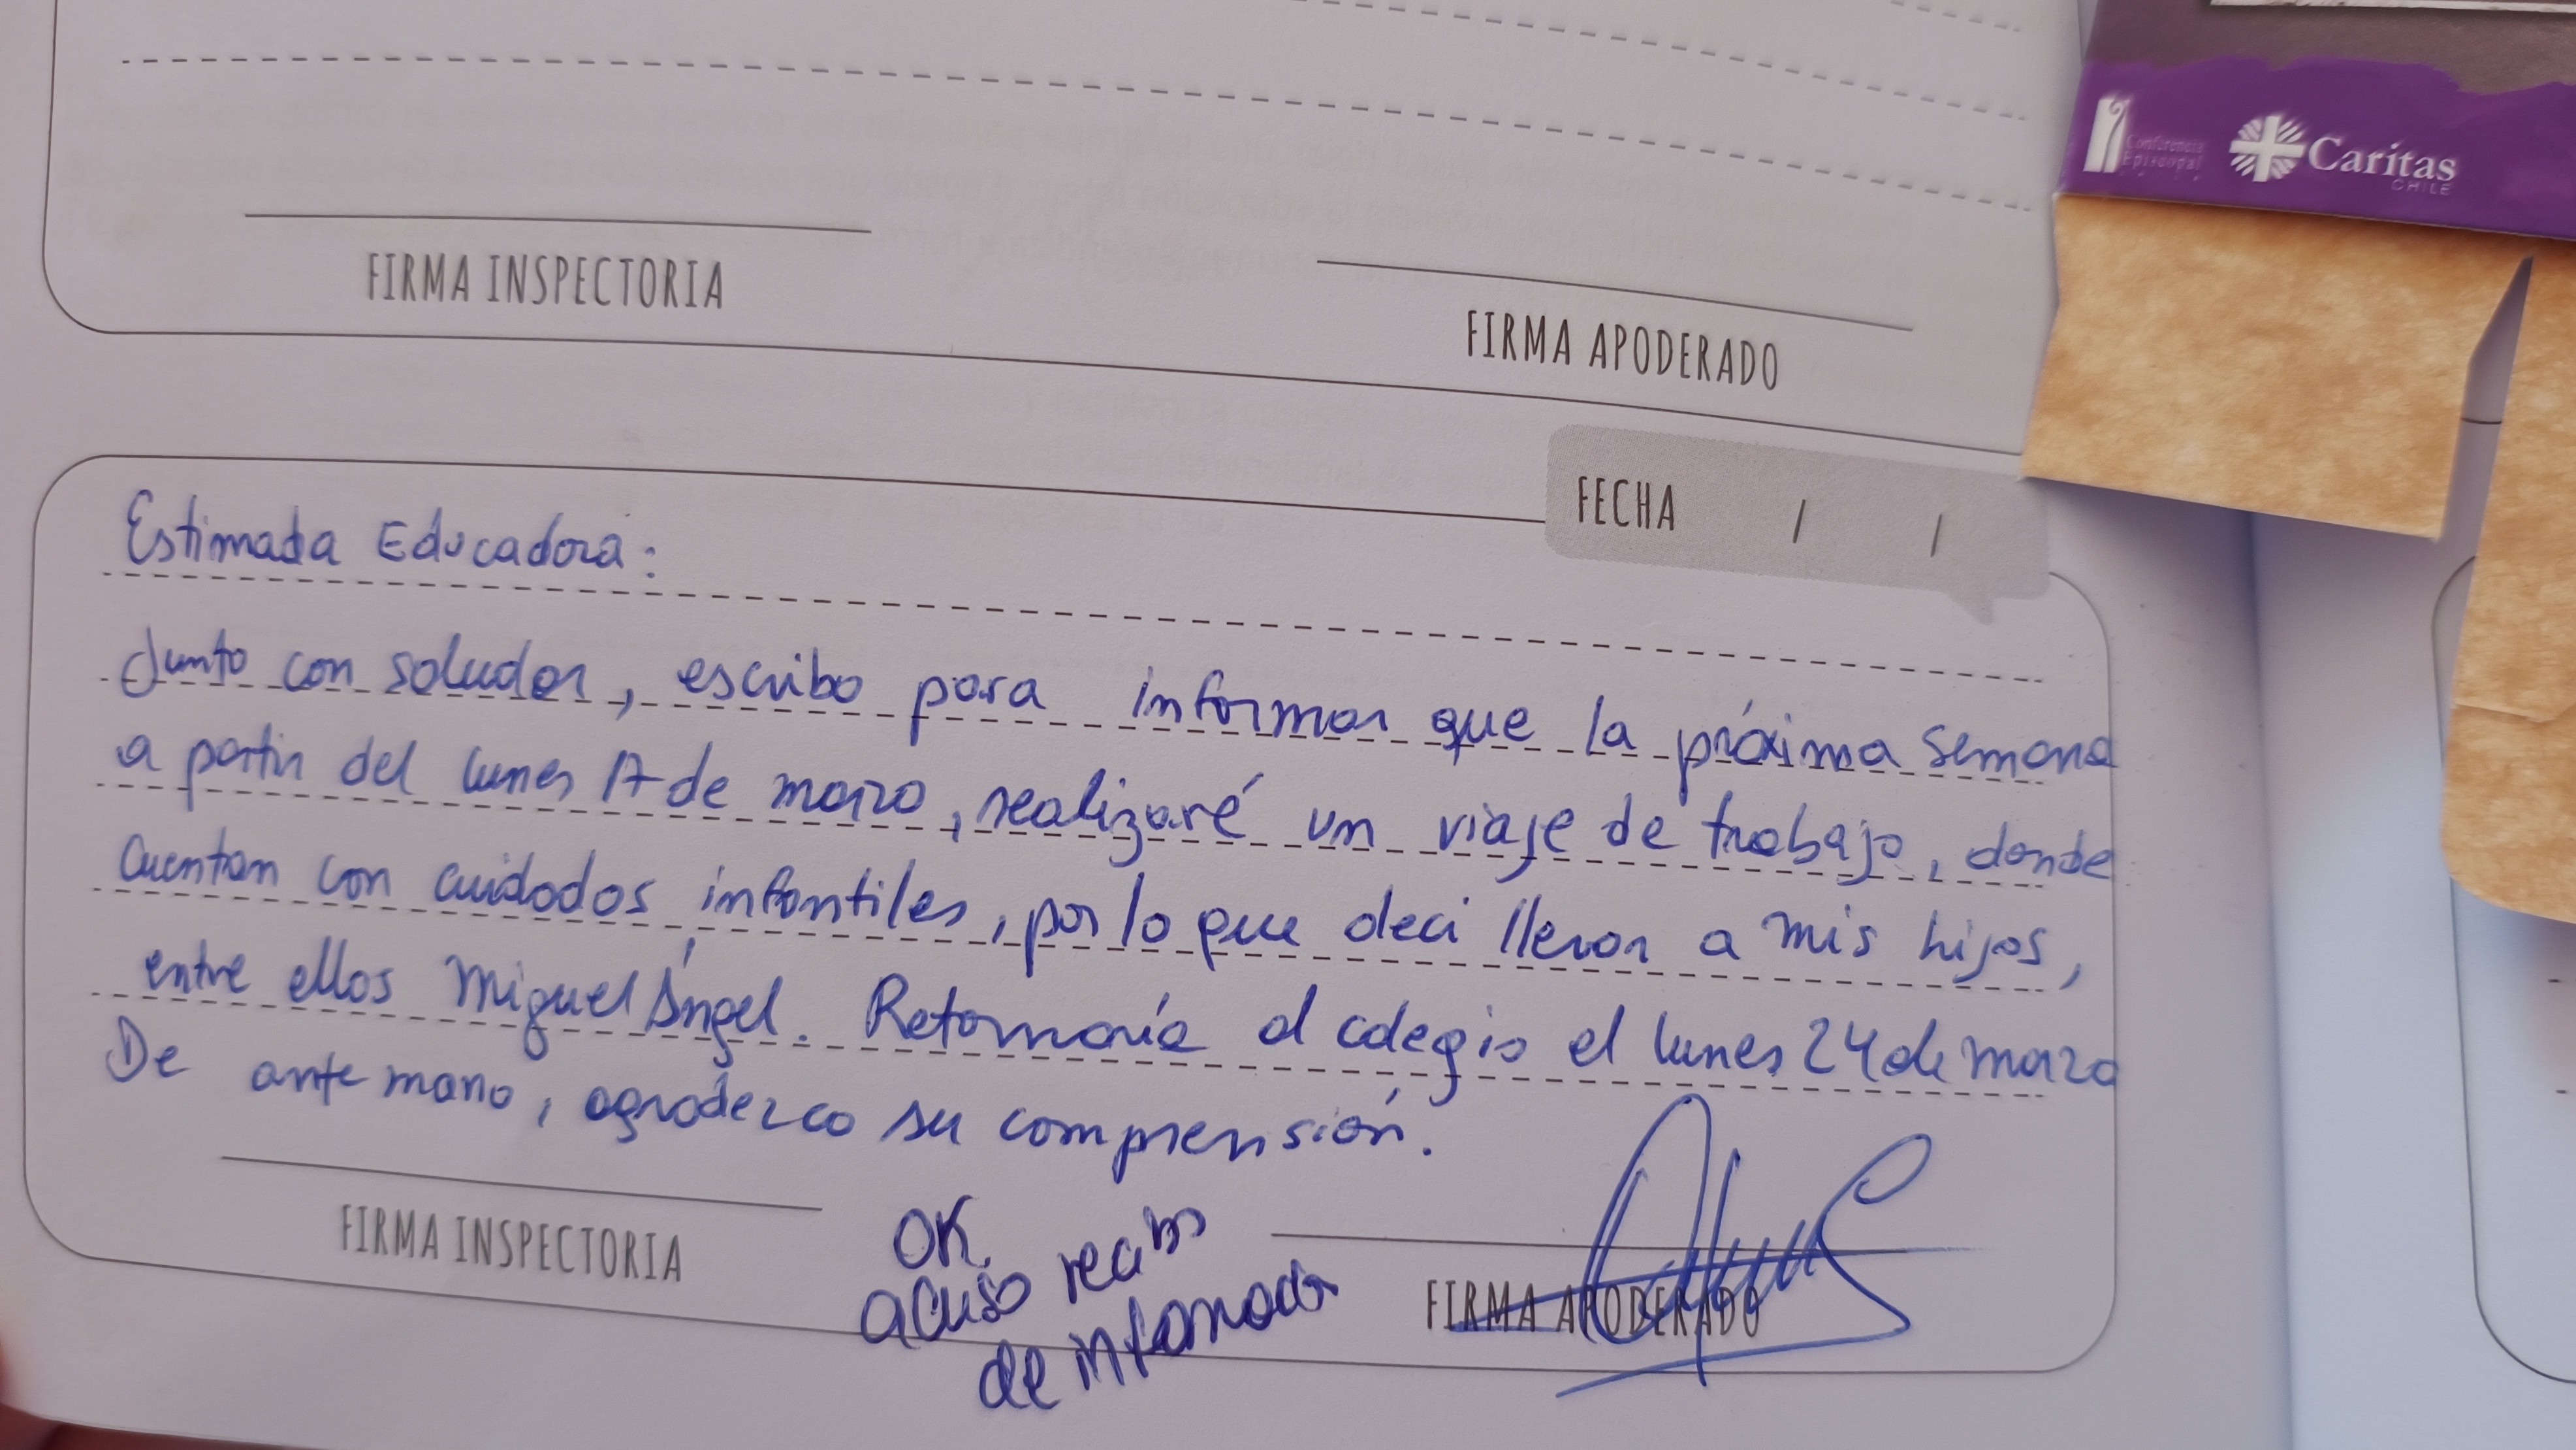 Conferencia
Episcopal
Caritas
CHILE
FIRMA INSPECTORIA
FIRMA APODERADO
FECHA / /
Estimada Educadora:
Junto con saludar, escribo para informar que la próxima semana
a partir del lunes 17 de marzo, realizaré un viaje de trabajo, donde
cuentan con cuidados infantiles, por lo que deci llevar a mis hijos,
entre ellos Miguel Ángel. Retomaría el colegio el lunes 24 de marzo
De ante mano, agradezco su comprensión.
FIRMA INSPECTORIA
OK.
acuso recibo
de información
FIRMA APODERADO